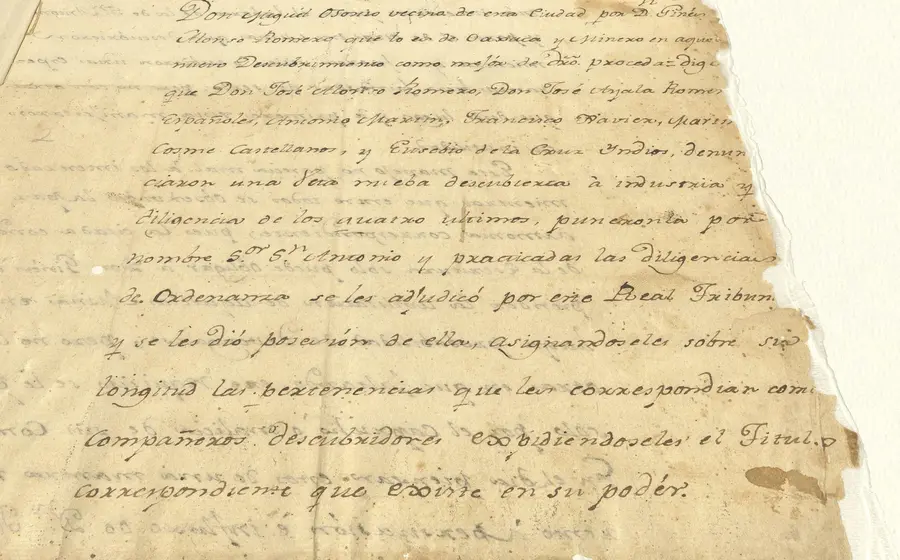 Don Miguel Osorio vecino de esta Ciudad por D. Ginés
Alonso Romero que lo es de Oaxaca y Minero en aquel
nuevo Descubrimiento como mejor de dro. proceda= digo
que Don José Alonso Romero, Don José Ayala Romer
Españoles, Antonio Martin, Francisco Xavier, Martin
Cosme Castellanos, y Eusebio de la Cruz Yndios, denun
ciaron una veta nueba descubierta à industria y
diligencia de los quatro ultimos, pusieronla por
nombre S.or S.n Antonio y practicadas las diligencias
de Ordenanza se les adjudicó por este Real Tribun
y se les dió posesión de ella, asignandoseles sobre su
longitud las pertenencias que les correspondian como
Compañeros descubridores expidiendoseles el Titulo
correspondiente que existe en su podér.